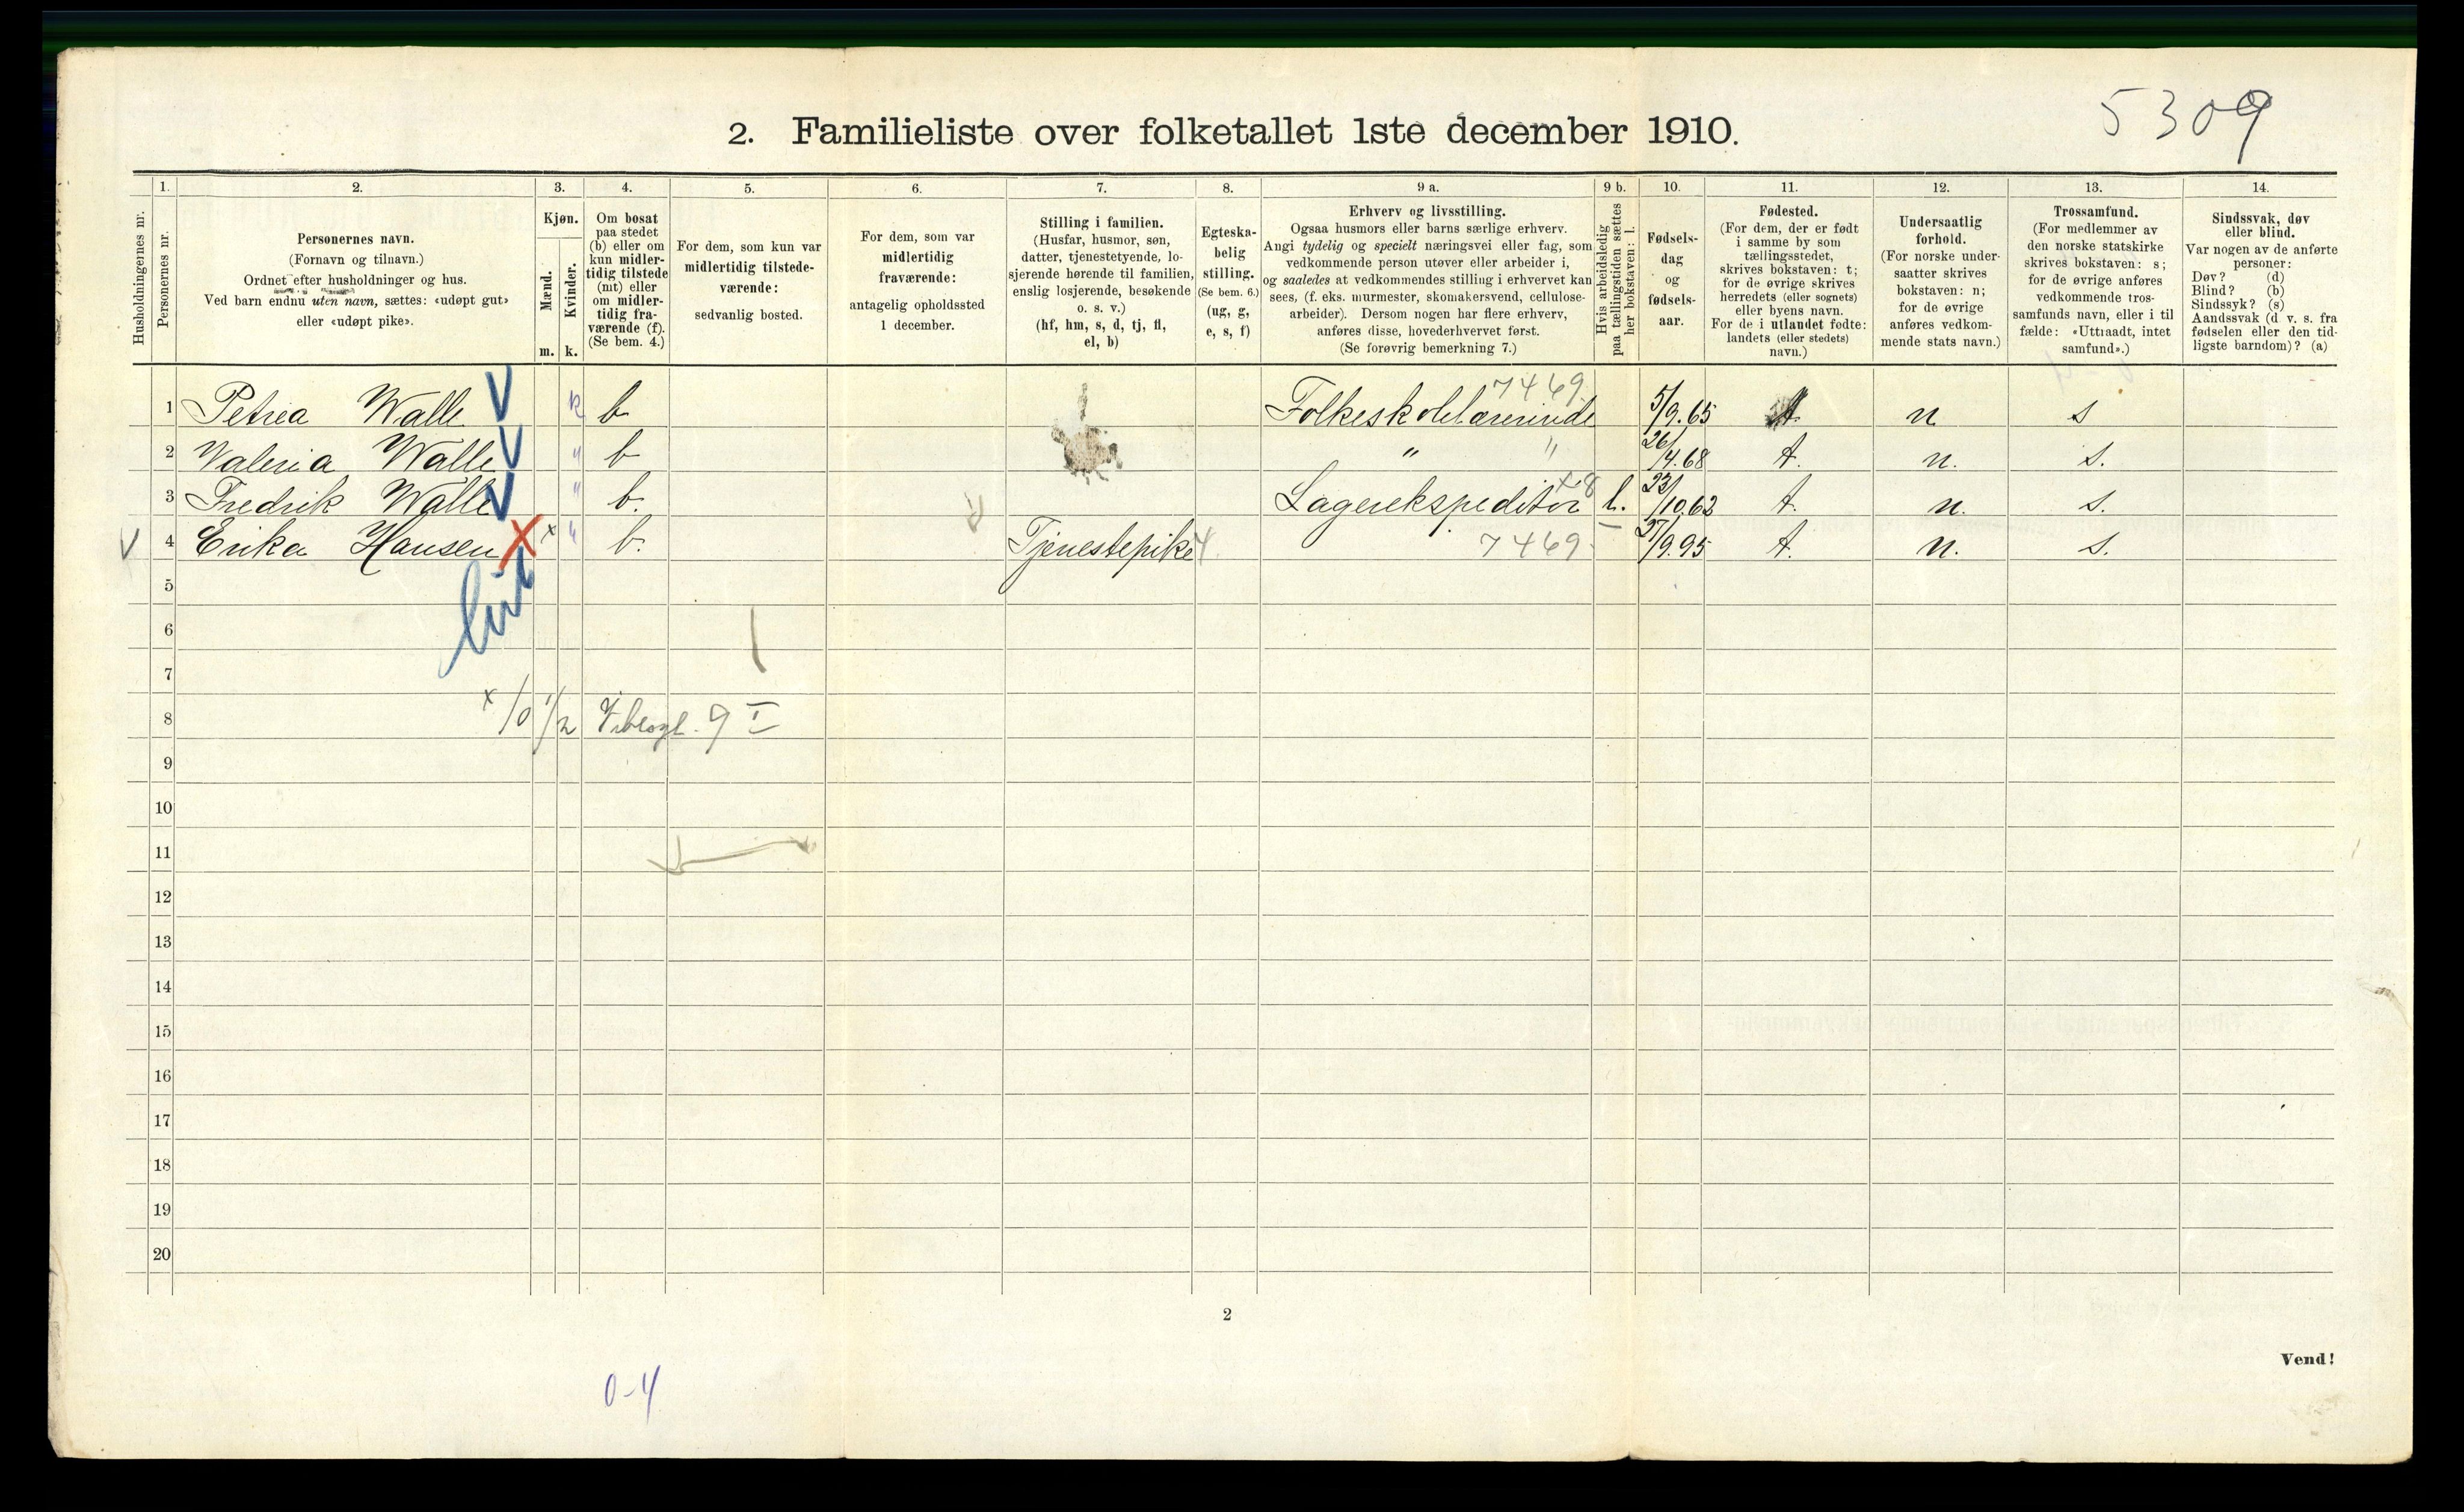 5309
2. Familieliste over folketallet 1ste december 1910.
1. 2. 3. 4. 5. 6. 7. 8. 9 a. 9 b. 10. 11. 12. 13. 14.
Husholdningernes nr.
Personernes nr.
Personernes navn.
(Fornavn og tilnavn.)
Ordnet efter husholdninger og hus.
Ved barn endnu uten navn, sættes: «udøpt gut»
eller «udøpt pike».
Kjøn.
Mænd.
Kvinder.
m. k.
Om bosat
paa stedet
(b) eller om
kun midler-
tidig tilstede
(mt) eller
om midler-
tidig fra-
værende (f).
(Se bem. 4.)
For dem, som kun var
midlertidig tilstede-
værende:
sedvanlig bosted.
For dem, som var
midlertidig
fraværende:
antagelig opholdssted
1 december.
Stilling i familien.
(Husfar, husmor, søn,
datter, tjenestetyende, lo-
sjerende hørende til familien,
enslig losjerende, besøkende
o. s. v.)
(hf, hm, s, d, tj, fl,
el, b)
Egteska-
belig
stilling.
(Se bem. 6.)
(ug, g,
e, s, f)
Erhverv og livsstilling.
Ogsaa husmors eller barns særlige erhverv.
Angi tydelig og specielt næringsvei eller fag, som
vedkommende person utøver eller arbeider i,
og saaledes at vedkommendes stilling i erhvervet kan
sees, (f. eks. murmester, skomakersvend, cellulose-
arbeider). Dersom nogen har flere erhverv,
anføres disse, hovederhvervet først.
(Se forøvrig bemerkning 7.)
Hvis arbeidsledig
paa tællingstiden sættes
her bokstaven: l.
Fødsels-
dag
og
fødsels-
aar.
Fødested.
(For dem, der er født
i samme by som
tællingsstedet,
skrives bokstaven: t;
for de øvrige skrives
herredets (eller sognets)
eller byens navn.
For de i utlandet fødte:
landets (eller stedets)
navn.)
Undersaatlig
forhold.
(For norske under-
saatter skrives
bokstaven: n;
for de øvrige
anføres vedkom-
mende stats navn.)
Trossamfund.
(For medlemmer av
den norske statskirke
skrives bokstaven: s;
for de øvrige anføres
vedkommende tros-
samfunds navn, eller i til
fælde: «Uttraadt, intet
samfund».)
Sindssvak, døv
eller blind.
Var nogen av de anførte
personer:
Døv? (d)
Blind? (b)
Sindssyk? (s)
Aandssvak (d v. s. fra
fødselen eller den tid-
ligste barndom)? (a)
7469
1 Petrea Walle V k b Folkeskolelærerinde 5/9.65 t. n s
2 Valeria Walle V " b " " 26/4.68 t. n. s.
3 Fredrik Walle V " b. Lagerekspeditør x8 l. 23/10.62 t. n. s.
V 4 Erika Hansen X x " b. Tjenestepike 4 7469 27/9.95 t. n. s.
5
6
7
8 x/0 1/2 9 I
9
10
11
12
13
14
15
16
17
18
19
20
2
Vend!
0-4